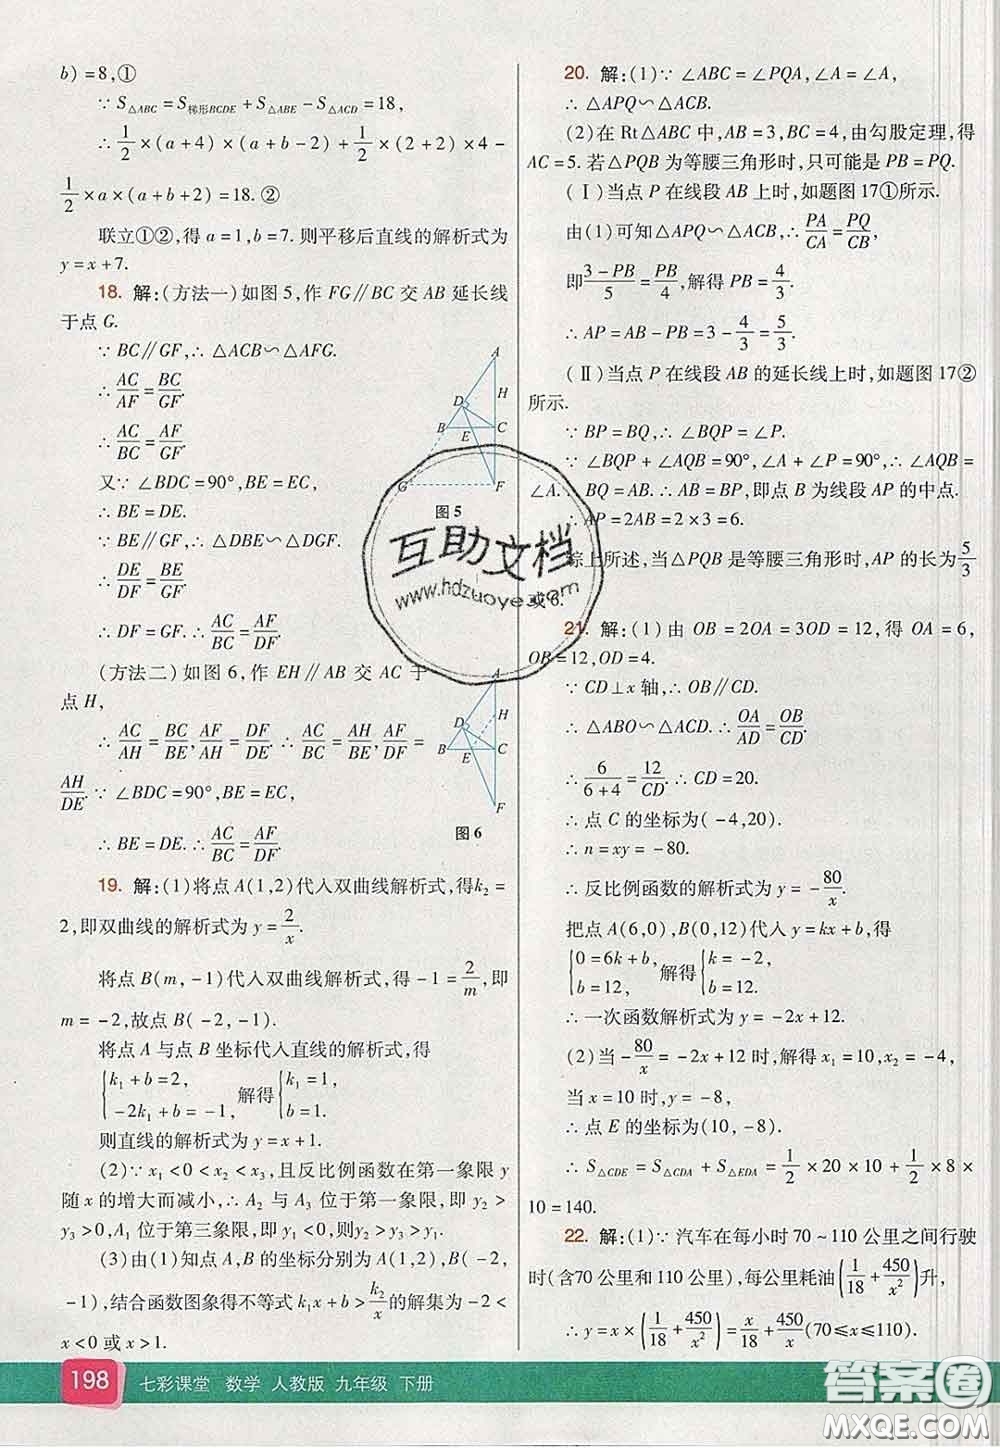 b)=8,①
∵ S△ABC=S梯形BCDE+S△ABE-S△ACD=18,
∴ 1/2×(a+4)×(a+b-2)+1/2×(b+2)×4-
1/2×a×(a+b+2)=18.②
联立①②,得a=1,b=7.则平移后直线的解析式为
y=x+7.
18. 解:(方法一)如图5,作FG∥BC交AB延长线
于点G.
∵ BC∥GF,∴ △ACB∽△AFG.
∴ AC/AF=BC/GF.
∴ AC/BC=AF/GF.
又∵ ∠BDC=90°,BE=EC,
∴ BE=DE.
∵ BE∥GF,∴ △DBE∽△DGF.
∴ DE/DF=BE/GF.
∴ DF=GF.∴ AC/BC=AF/DF.
A
H
D
B
E
C
G
F
图5
(方法二)如图6,作EH∥AB交AC于
点H,
∴ AC/AH=BC/BE,AF/AH=DF/DE.∴ AC/BC=AH/BE,AF/DF=
AH/DE.∵ ∠BDC=90°,BE=EC,
∴ BE=DE.∴ AC/BC=AF/DF.
A
H
D
B
E
C
F
图6
19. 解:(1)将点A(1,2)代入双曲线解析式,得k₂=
2,即双曲线的解析式为y=2/x.
将点B(m,-1)代入双曲线解析式,得-1=2/m,即
m=-2,故点B(-2,-1).
将点A与点B坐标代入直线的解析式,得
{k₁+b=2, -2k₁+b=-1, 解得 {k₁=1, b=1.
则直线的解析式为y=x+1.
(2)∵ x₁<0<x₂<x₃,且反比例函数在第一象限y
随x的增大而减小,∴ A₂与A₃位于第一象限,即y₂>
y₃>0,A₁位于第三象限,即y₁<0,则y₂>y₃>y₁.
(3)由(1)知点A,B的坐标分别为A(1,2),B(-2,
-1),结合函数图象得不等式k₁x+b>k₂/x的解集为-2<
x<0或x>1.
20. 解:(1)∵ ∠ABC=∠PQA,∠A=∠A,
∴ △APQ∽△ACB.
(2)在Rt△ABC中,AB=3,BC=4,由勾股定理,得
AC=5.若△PQB为等腰三角形时,只可能是PB=PQ.
(Ⅰ)当点P在线段AB上时,如题图17①所示.
由(1)可知△APQ∽△ACB,∴ PA/CA=PQ/CB,
即(3-PB)/5=PB/4,解得PB=4/3,
∴ AP=AB-PB=3-4/3=5/3.
(Ⅱ)当点P在线段AB的延长线上时,如题图17②
所示.
∵ BP=BQ,∴ ∠BQP=∠P.
∵ ∠BQP+∠AQB=90°,∠A+∠P=90°,∴ ∠AQB=
∠A. BQ=AB.∴ AB=BP,即点B为线段AP的中点.
∴ AP=2AB=2×3=6.
综上所述,当△PQB是等腰三角形时,AP的长为5/3
或6.
21. 解:(1)由OB=2OA=3OD=12,得OA=6,
OB=12,OD=4.
∵ CD⊥x轴,∴ OB∥CD.
∴ △ABO∽△ACD.∴ OA/AD=OB/CD.
∴ 6/(6+4)=12/CD.∴ CD=20.
∴ 点C的坐标为(-4,20).
∴ n=xy=-80.
∴ 反比例函数的解析式为y=-80/x.
把点A(6,0),B(0,12)代入y=kx+b,得
{0=6k+b, b=12, 解得 {k=-2, b=12.
∴ 一次函数解析式为y=-2x+12.
(2)当-80/x=-2x+12时,解得x₁=10,x₂=-4,
当x=10时,y=-8,
∴ 点E的坐标为(10,-8).
∴ S△CDE=S△CDA+S△EDA=1/2×20×10+1/2×8×
10=140.
22. 解:(1)∵ 汽车在每小时70~110公里之间行驶
时(含70公里和110公里),每公里耗油(1/18+450/x²)升,
∴ y=x×(1/18+450/x²)=x/18+450/x(70≤x≤110).
互助文档
www.hdzuoye.com
198 七彩课堂 数学 人教版 九年级 下册
答案圈
MXQE.COM